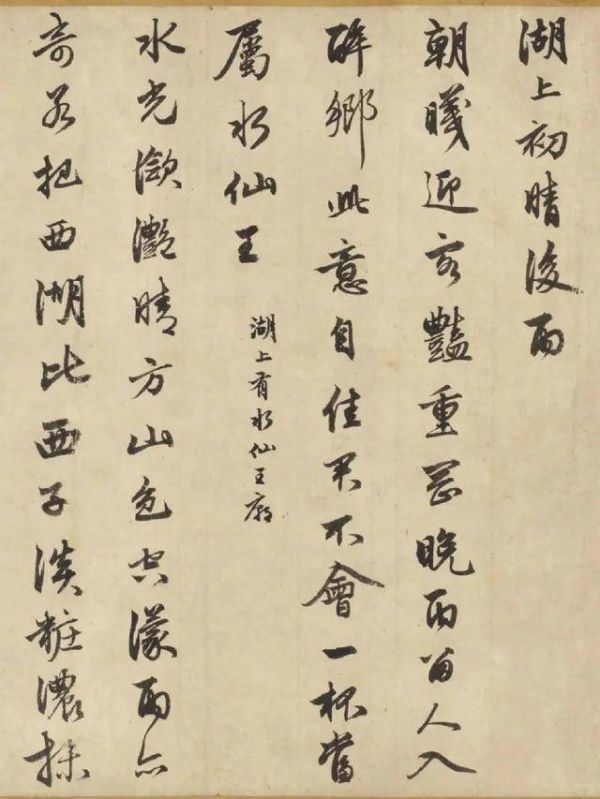 湖上初晴後雨
朝曦迎客豔重岡晚雨留人入
醉鄉此意自佳君不會一杯當
屬水仙王
湖上有水仙王廟
水光瀲灩晴方山色空濛雨亦
奇若把西湖比西子淡粧濃抹